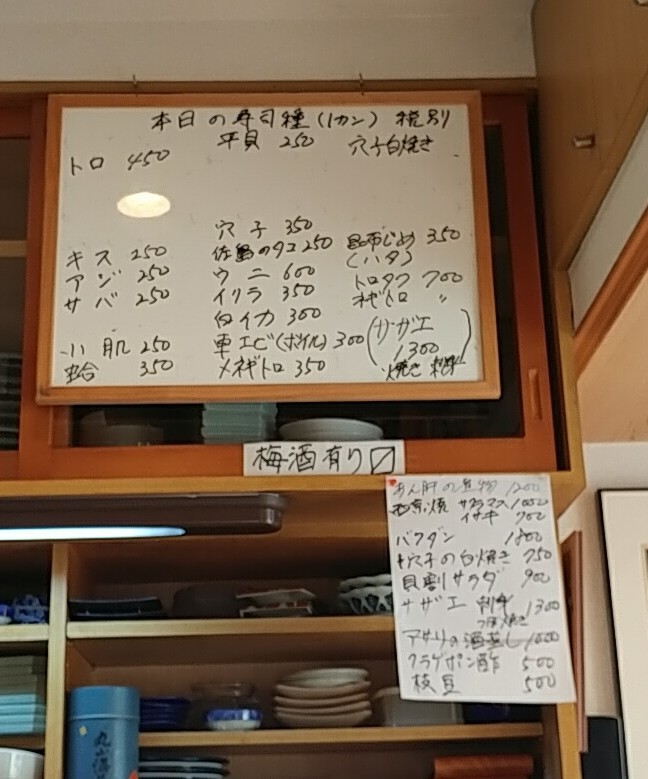 本日の寿司種(1カン) 税別
トロ 450
平貝 250
穴子白焼き
キス 250
アジ 250
サバ 250
小肌 250
蛤 350
穴子 350
佐島のタコ 250
ウニ 600
イクラ 350
白イカ 300
車エビ(ボイル) 300
メネギトロ 350
昆布じめ 350
(ハタ)
トロタク 700
ネギトロ 〃
(サザエ
1300
焼き 刺身)
梅酒有り〼
あん肝の煮物 1200
西京焼 サクラマス 1000
イサキ 900
バクダン 1800
穴子の白焼き 750
貝割サラダ 900
サザエ 刺身 1300
つぼ焼き
アサリの酒蒸し 1000
クラゲポン酢 500
枝豆 500